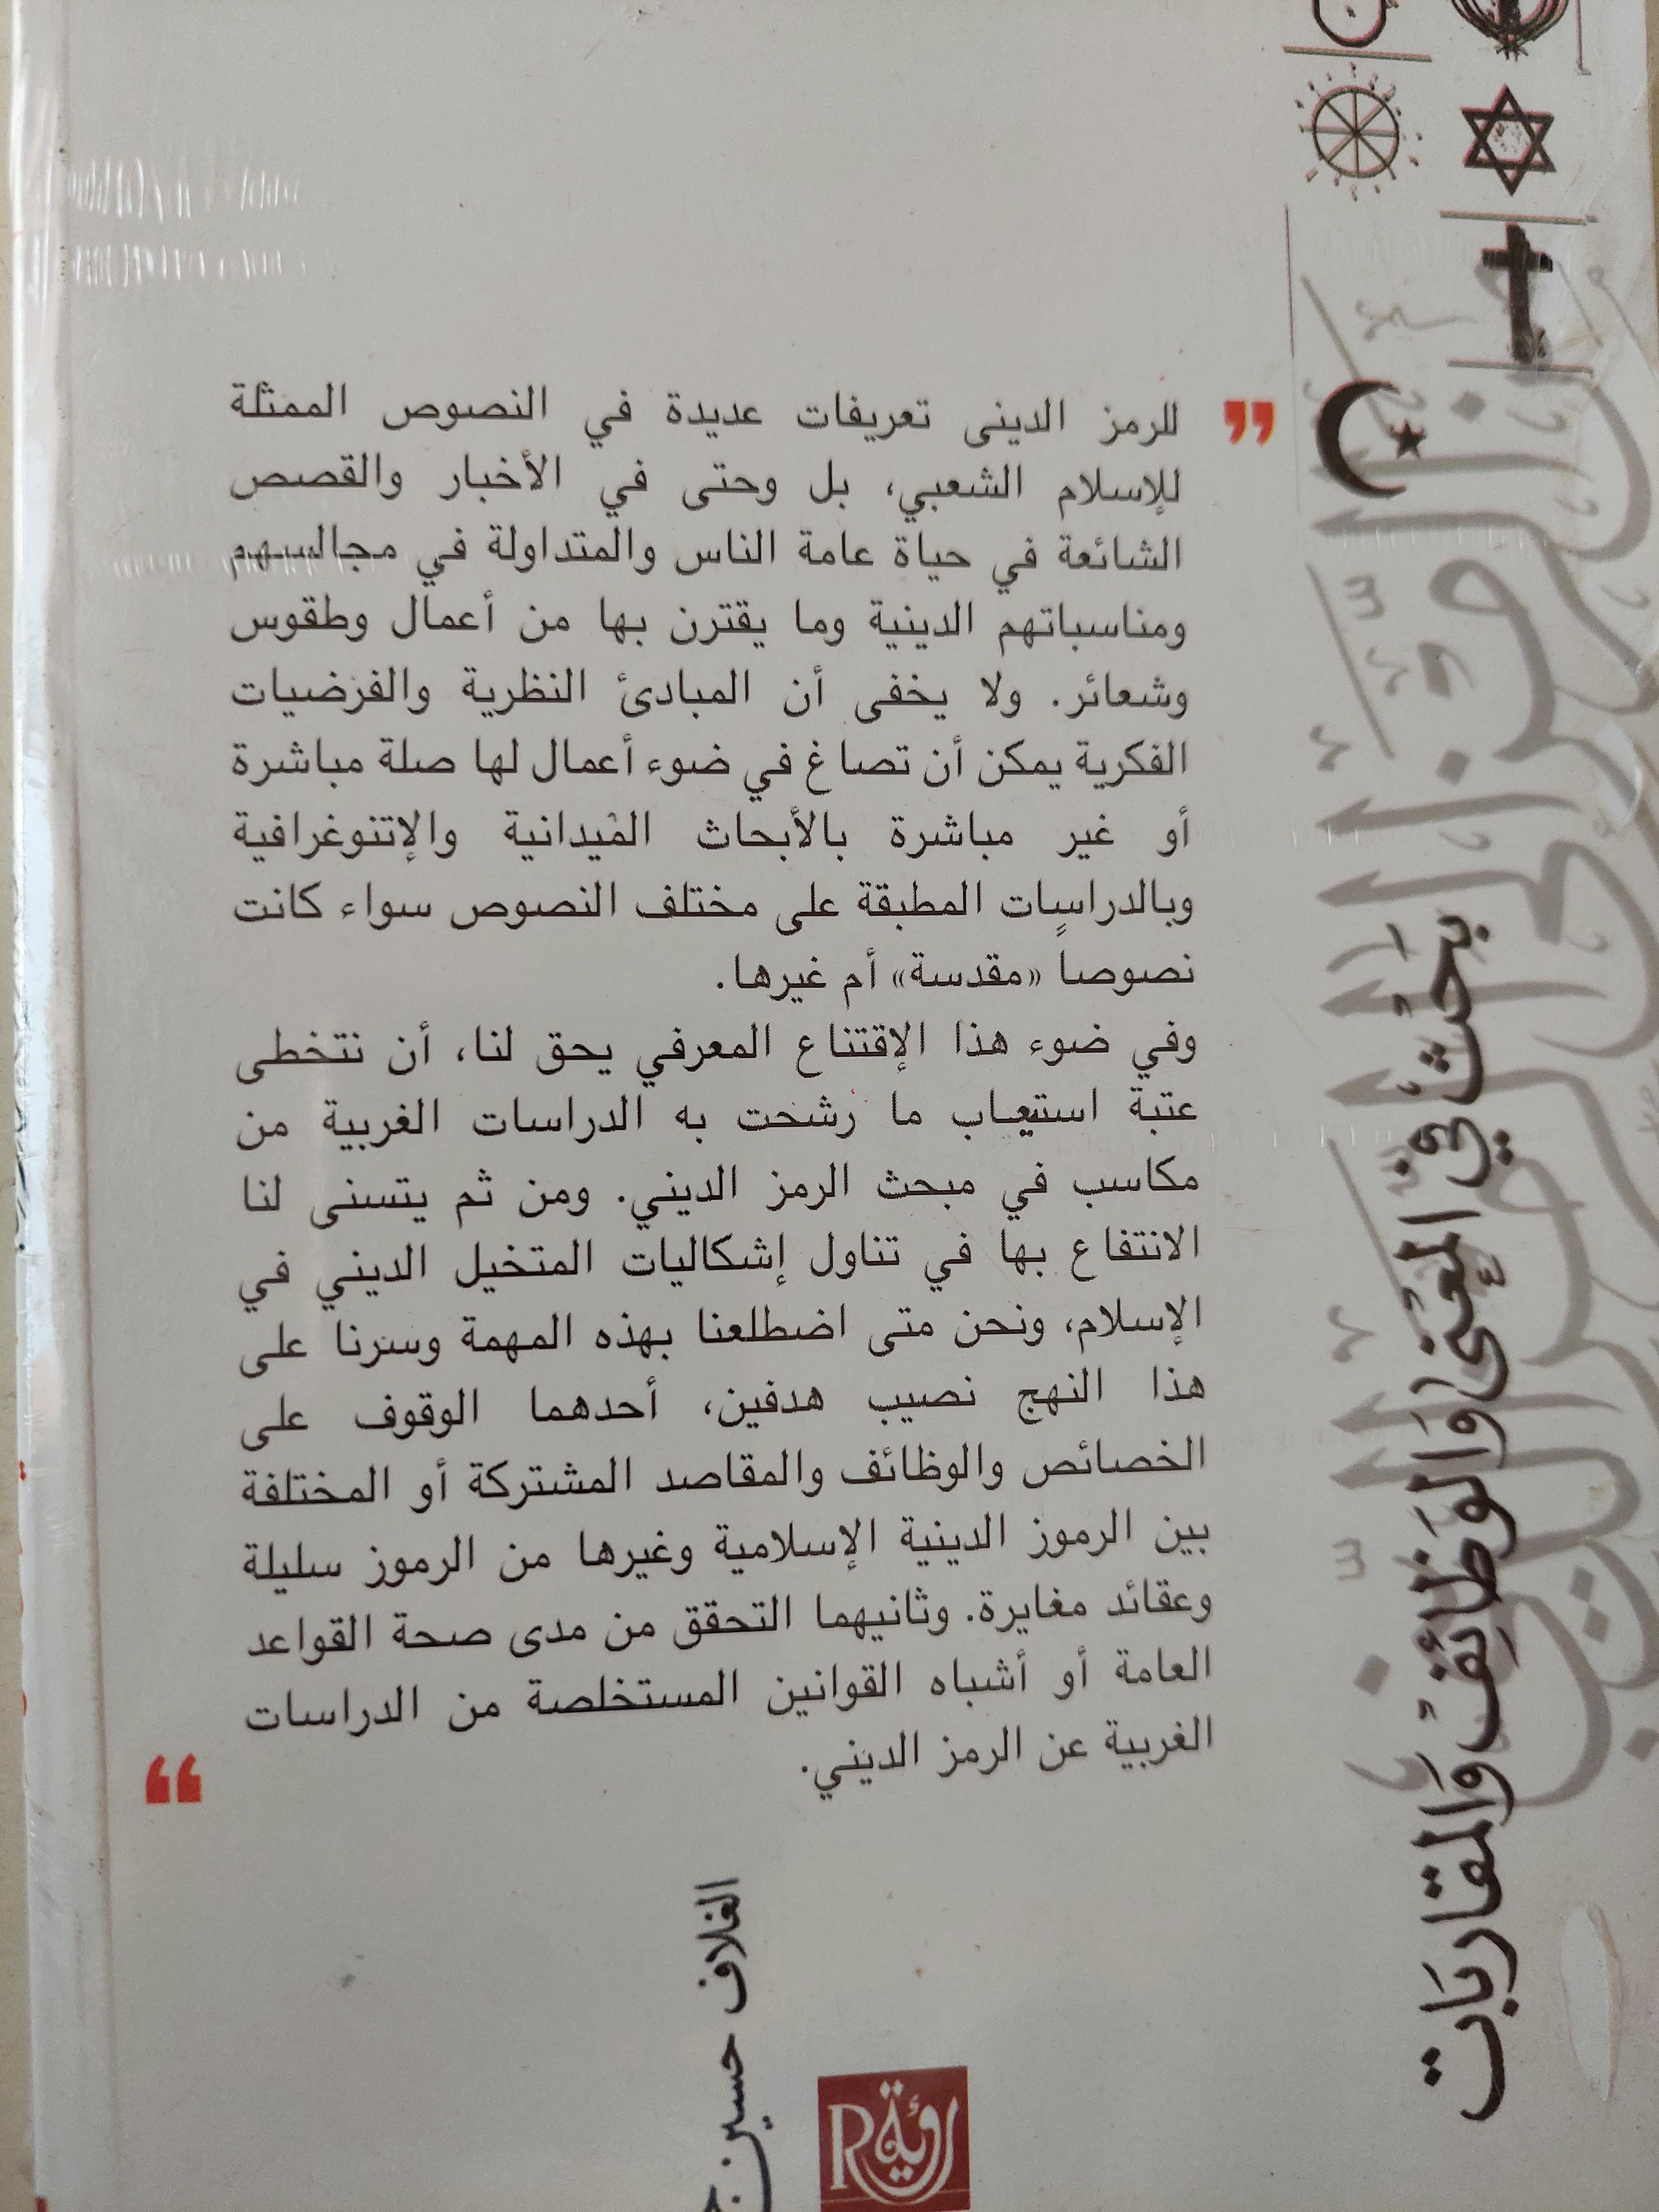 للرمز الدينى تعريفات عديدة في النصوص الممثلة
للإسلام الشعبي، بل وحتى في الأخبار والقصص
الشائعة في حياة عامة الناس والمتداولة في مجالسهم
ومناسباتهم الدينية وما يقترن بها من أعمال وطقوس
وشعائر. ولا يخفى أن المبادئ النظرية والفرضيات
الفكرية يمكن أن تصاغ في ضوء أعمال لها صلة مباشرة
أو غير مباشرة بالأبحاث الميدانية والإتنوغرافية
وبالدراسات المطبقة على مختلف النصوص سواء كانت
نصوصاً «مقدسة» أم غيرها.
وفي ضوء هذا الإقتناع المعرفي يحق لنا، أن نتخطى
عتبة استيعاب ما رشحت به الدراسات الغربية من
مكاسب في مبحث الرمز الديني. ومن ثم يتسنى لنا
الانتفاع بها في تناول إشكاليات المتخيل الديني في
الإسلام، ونحن متى اضطلعنا بهذه المهمة وسرنا على
هذا النهج نصيب هدفين، أحدهما الوقوف على
الخصائص والوظائف والمقاصد المشتركة أو المختلفة
بين الرموز الدينية الإسلامية وغيرها من الرموز سليلة
وعقائد مغايرة. وثانيهما التحقق من مدى صحة القواعد
العامة أو أشباه القوانين المستخلصة من الدراسات
الغربية عن الرمز الديني.
بَحَثٌ في المعَنى وَالوَظائِف وَالمقاربَات
الغلاف حسين
رؤية
R